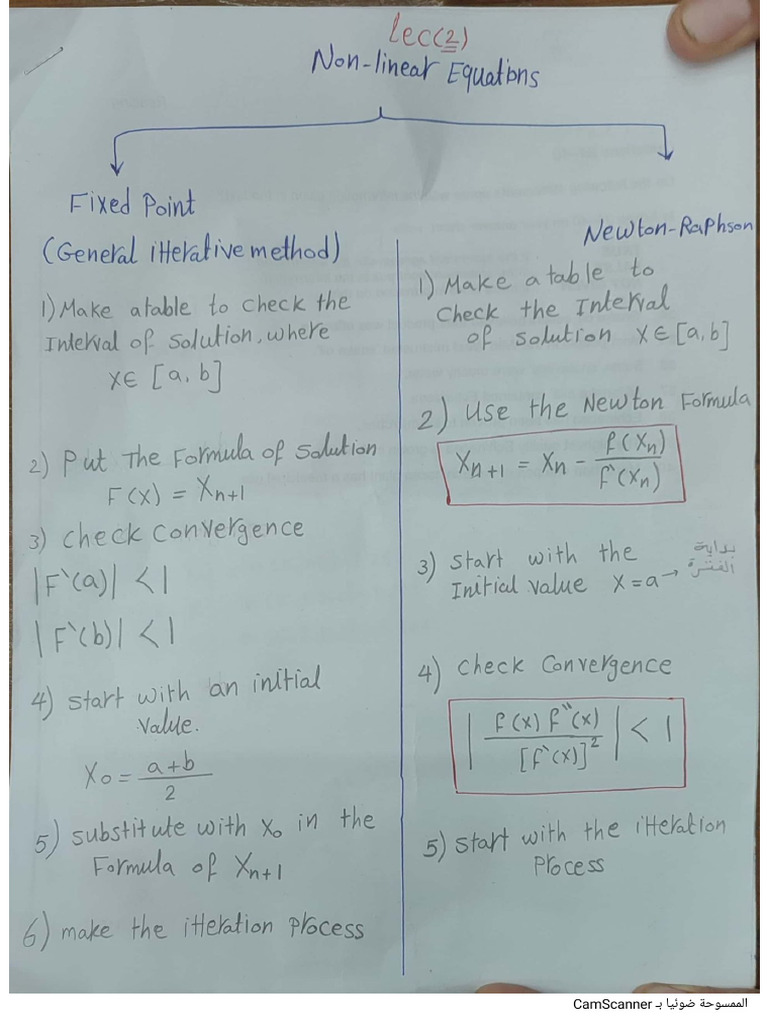 Lec(2)
Non-linear Equations
Fixed Point
(General itterative method)
1) Make a table to check the
Interval of solution, where
x∈ [a, b]
2) Put The Formula of Solution
F(x) = Xn+1
3) check convergence
|F`(a)| < 1
|F`(b)| < 1
4) start with an initial
value.
X₀ = a+b
2
5) substitute with X₀ in the
Formula of Xn+1
6) make the itteration process
Newton-Raphson
1) Make a table to
check the Interval
of solution x∈ [a, b]
2) Use the Newton Formula
Xn+1 = Xn - f(Xn)
f`(Xn)
3) start with the بداية
Initial value x = a → الفترة
4) check convergence
| f(x) f``(x) | < 1
[f`(x)]²
5) start with the itteration
Process
الممسوحة ضوئيا بـ CamScanner